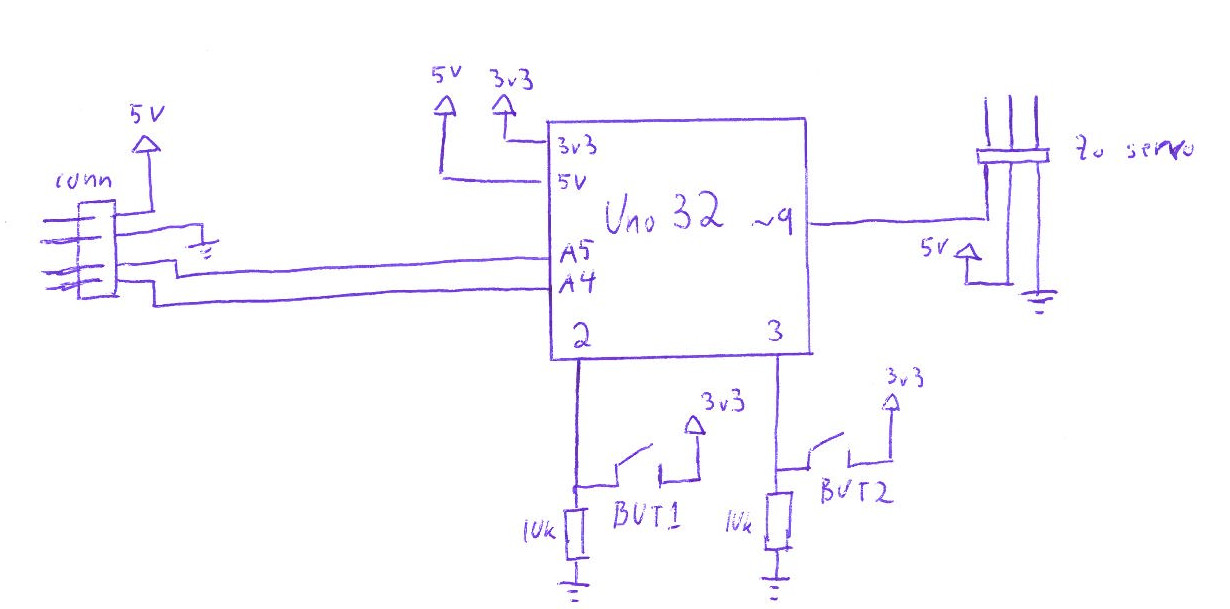 5V 3v3
5V
conn
3v3
5V
Uno 32 ~9
A5
A4
2 3
to servo
5V
3v3
BUT1
10k
3v3
BUT2
10k